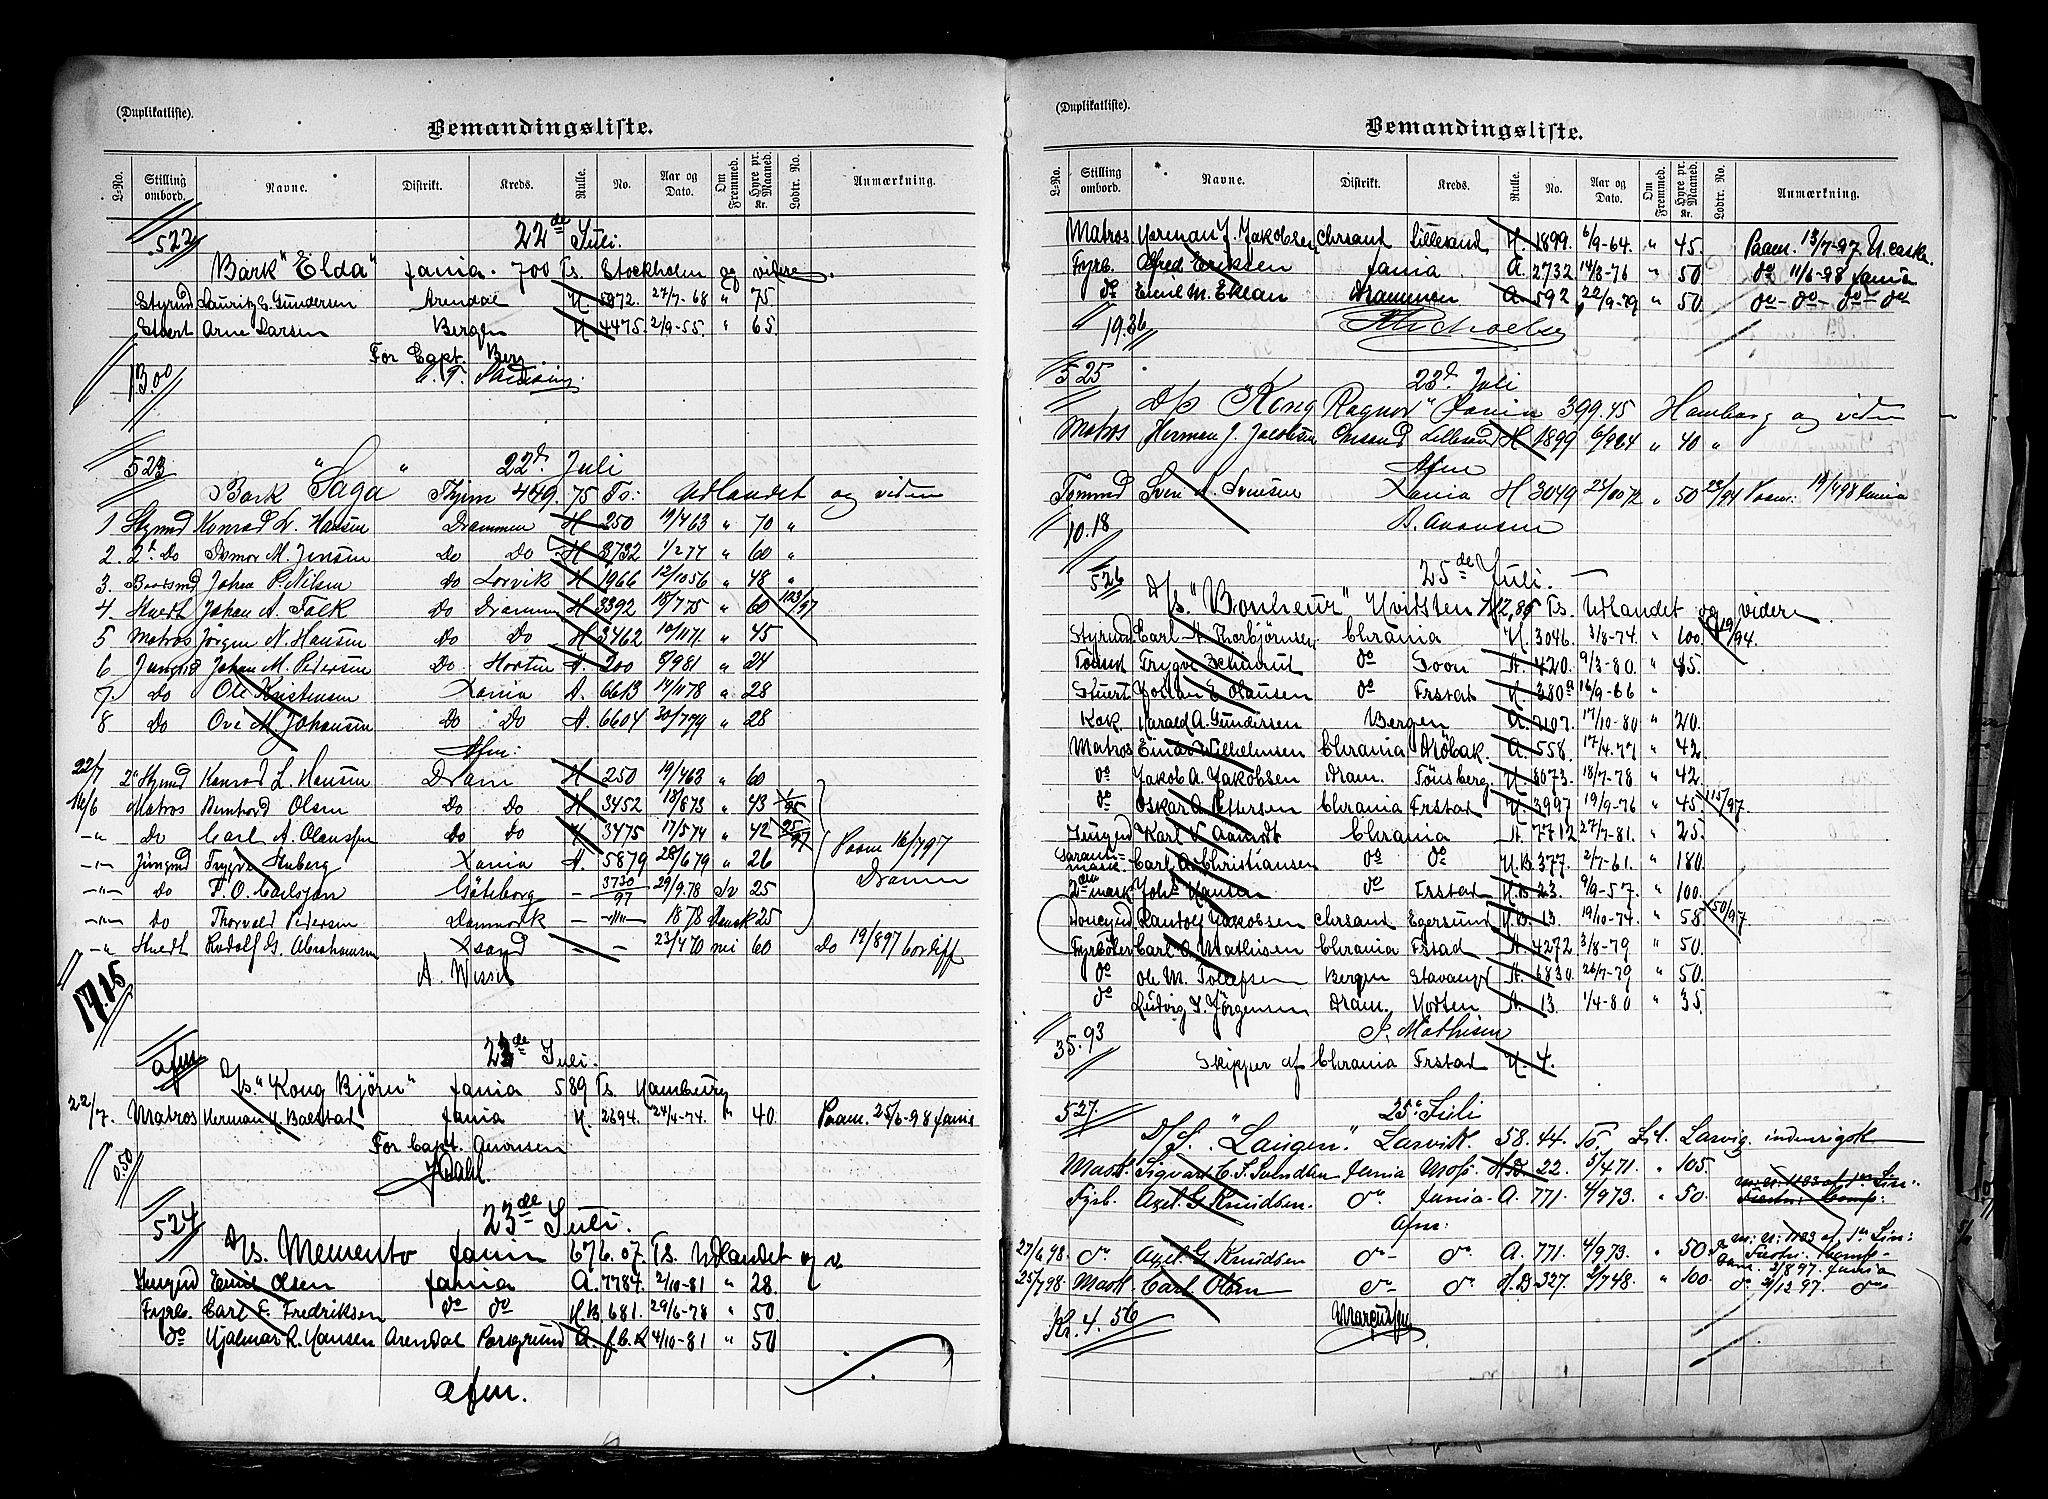 (Duplikatliste).
Bemandingsliste.
L-No. Stilling ombord. Navne. Distrikt. Kreds. Rulle. No. Aar og Dato. Om Fremmed. Hyre pr. Maaned. Kr. Lodtr. No. Anmærkning.
522 22de Juli.
Bark "Elda" fania. 700 Ts. Stockholm og videre.
Styrmd Lauritz G. Gundersen Arendal H. 5972. 27/7-68 " 75
Stuert Arne Larsen Bergen H. 4475. 2/9-55. " 65.
For Capt. Berg.
13.00
523 22d. Juli
Bark "Saga" Thjem 449.75 Ts: Udlandet og videre
1 Styrmd Konrad L. Hansen Drammen H 250 19/463 " 70 "
2. 2d Do M. Jensen Do Do H 3732 1/277 " 60 "
3. Baadsmd Johan P. Nilsen Do Larvik H 1966 12/1056 " 48 "
4 Stuert Johan A. Falk Do Dramm H 3392 18/775 " 60 123/97
5 Matros Jörgen N. Hansen Do Do H 3462 10/1171 " 45
6 Jungmd Johan M. Pedersen Do Horten A. 200 8/981 " 24
7 Do Ole Kristensen Xania A. 6613 19/1178 " 28
8 Do Ove M. Johansen Do Do A. 6604 30/779 " 28
Afm:
22/7 2d Styrmd Konrad L. Hansen Dram H 250 19/463 " 60
16/6 Matros Bernhard Olsen Do Do H 3452 18/873 " 43 1/95
-"- Do Carl A. Olaussen Do Do H 3475 17/574 " 42 95/97 Paam 16/797
-"- Jüngmd Trygve Anberg Xania A. 5879 28/679 " 26 Dramm
-"- Do F. O. Carlsson Göteborg - 3730/97 29/9.78 Sv 25
-"- Do Thorvald Pedersen Danmark - -"- 1878 Dansk 25
-"- Stuert Rudolf G. Abrahamsen Xsand - - 23/470 nei 60 Do 19/897 Cardiff
A. Wissel
17.15
afm. 23de Juli.
D/s. "Kong Björn" fania 589 Ts. Hamburg
22/7. Matros Herman H. Baastad fania H. 2694. 24/4-74. " 40 Paam. 25/6-98 fania
For Capt. Aronsen
Dahl.
0.50
524 23de Juli.
D/s. Memento fania 676.07. Ts. Udlandet og v.
Jungmd Emil Olsen fania A. 7784. 2/10-81 " 28.
Fyrb. Carl E. Fredriksen do do H.B. 681. 29/6-78 " 50.
do Hjalmar R. Hansen Arendal Porsgrund A. f.C.R. 4/10-81 " 50
afm.
(Duplikatliste).
Bemandingsliste.
L-No. Stilling ombord. Navne. Distrikt. Kreds. Rulle. No. Aar og Dato. Om Fremmed. Hyre pr. Maaned. Kr. Lodtr. No. Anmærkning.
Matros Herman J. Jakobsen Chrsand Lillesand H. 1899. 6/9-64. " 45. Paam. 13/7-97 N.castle.
Fyrb. Alfred Eriksen fania A. 2732 14/8-76 " 50 do 11/6-98 fania
do Emil M. Eklan Drammen A. 592 22/9-79 " 50. do - do - do - do
19.36
525 23d. Juli
D/s "Kong Ragnar" Xania 399.45 Hamburg og viden
Matros Herman J. Jacobsen Chrsand Lillesand H 1899 6/964 " 40 "
Afm
Tømmd Sven A. Svensen Xania H 3049 " 50 Paam: fania
10.18 B. Aronsen
526 25de Juli.
D/s. "Bonheur" Hvidsten 712,85 Ts. Udlandet og videre.
Styrmd Carl A. Thorbjörnsen Chrania H. 3046. 3/8-74. " 100 119/94.
Tömmd Trygve do Soon A. 420. 9/3-80. " 45.
Stuert Johan E. Hansen do Frstad H. 380 a 16/9-66 "
Kok Harald A. Gundersen Bergen A. 2107. 17/10-80 " 20.
Matros Einar Wilhelmsen Chrania Dröbak. A. 558. 17/4.77 " 42
do Jakob A. Jakobsen Dram. Tönsberg H. 3073. 18/7-78 " 42.
do Oskar A. Pettersen Chrania Frstad H. 3997 19/9-76 " 45 115/97.
Jungmd Karl V. Aamodt Chrania A. 7712 27/7-81. " 25.
mask. Carl A. Christiansen do do H.B. 377. 2/7-61. " 180.
2den mask. Johs Hansen do Frstad H.B. 23. 9/9-57. " 100.
Randolf Jakobsen Chrsand Egersund H.B. 13. 19/10-74. " 58 50/97.
Fyrböter Carl O. Mathisen Chrania Fstad A. 4272 3/8-79 " 50.
do Ole M. Tollefsen Bergen Stavanger A. 6830. 26/7-79 " 50.
do Ludvig I. Jörgensen Dram. Hvdsten A. 13. 1/4-80 " 35
35.93 J. Mathisen
Skipper af Chrania Frstad H. 4.
527. 25de Juli
D/s. "Laugen". Larvik. 58.44. Ts. til Larvig. indenrigsk
Mask. Sigvart C. F. Svendsen fania Moss H.B. 22. 5/471. " 105.
Fyrb. Axel G. Knudsen. do fania. A. 771. 4/973. " 50.
Afm:
27/6.98. do Axel G. Knudsen do do A. 771. 4/973. " 50
25/798. Mask Carl Olsen do do H.B. 327. 2/748. " 100. do 2/12 97. do
Kr. 4.56 Marcussen